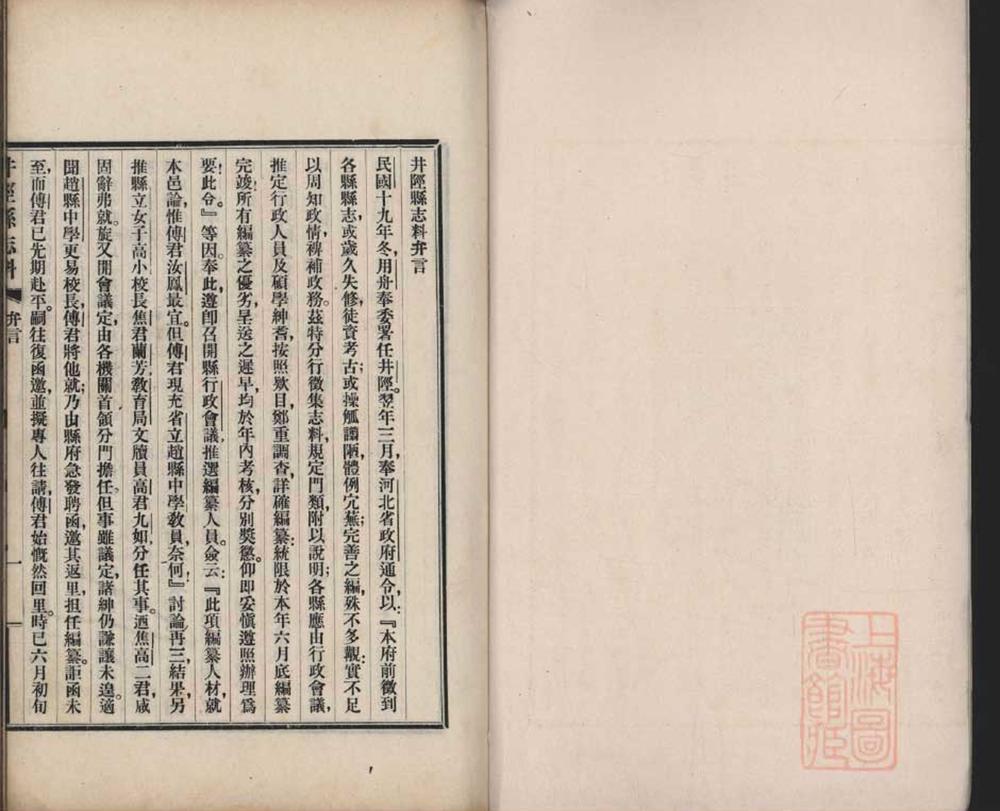 井陘縣志料弁言
民國十九年冬，用舟奉委署任井陘。翌年三月，奉河北省政府通令，以：『本府前徵到
各縣縣志，或歲久失修，徒資考古；或操觚譾陋，體例宂蕪；完善之編，殊不多覯；實不足
以周知政情，裨補政務。茲特分行徵集志料，規定門類，附以說明；各縣應由行政會議，
推定行政人員及碩學紳耆，按照欵目，鄭重調查，詳確編纂；統限於本年六月底編纂
完竣；所有編纂之優劣，呈送之遲早，均於年內考核，分別獎懲。仰卽妥慎遵照辦理爲
要；此令。』等因。奉此，遵卽召開縣行政會議，推選編纂人員。僉云：『此項編纂人材，就
本邑論，惟傅君汝鳳最宜。但傅君現充省立趙縣中學敎員，奈何』討論再三，結果，另
推縣立女子高小校長焦君蘭芳，敎育局文牘員高君九如，分任其事。迺焦高二君，咸
固辭弗就。旋又開會議定，由各機關首領分門擔任，但事雖議定，諸紳仍謙讓未遑。適
聞趙縣中學更易校長，傅君將他就；乃由縣府急發聘函，邀其返里，担任編纂。詎函未
至，而傅君已先期赴平。嗣往復函邀，並擬專人往請，傅君始慨然回里。時已六月初旬
井陘縣志料 弁言 一
上海圖書館藏